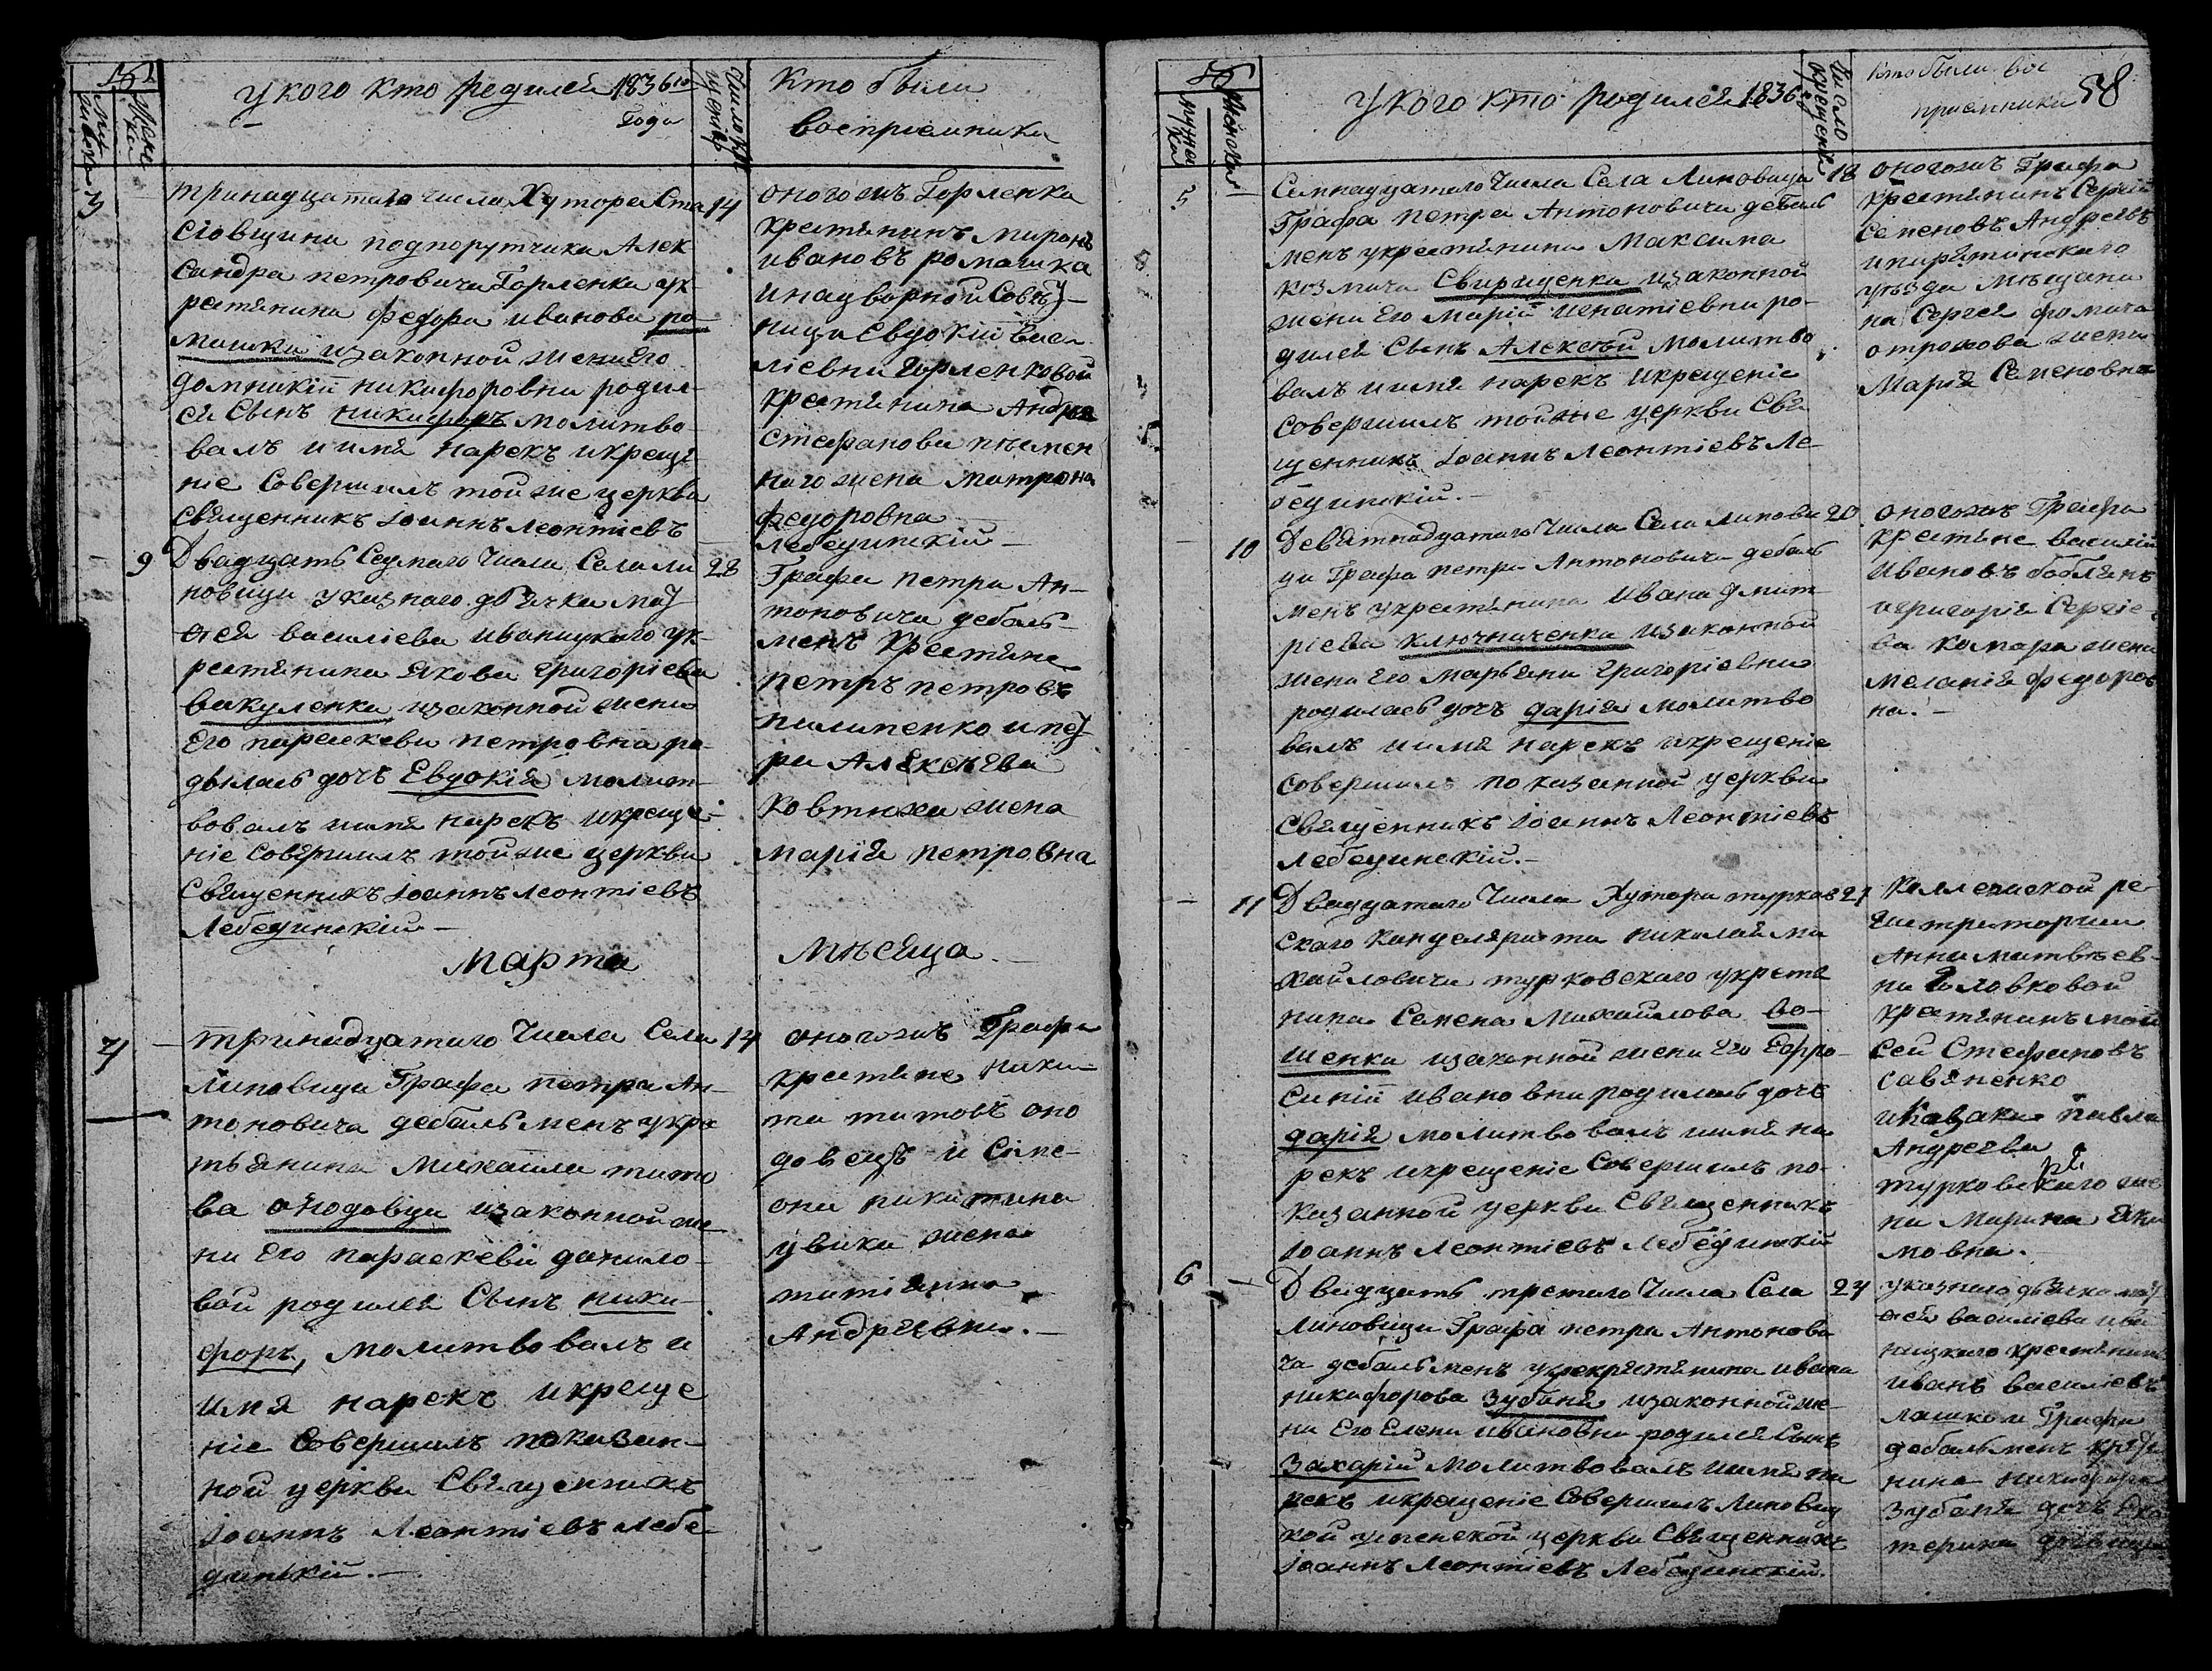 у кого кто родился 1836го
Года
Кто были
воспріемники
3
тринадцатаго числа Хутора Ста
14
сіовщини подпорутчика Алек
сандра петровича Горленка у к-
рестянина федора иванова ро
машки изаконной жени Его
домникіи никифоровни родил-
ся Сынъ никифоръ молитво
валъ и имя нарекъ икреще
ніе Совершилъ тойже церкви
Священникъ Іоаннъ Леонтіевъ
оногожъ Горленка
крестянинъ миронъ
ивановъ ромашка
инадворной Совѣт-
ници Евдокіи Васи
ліевни Горленковой
крестянина Андрея
Стефанова
наго жена матрона
федоровна
Лебединскій
9
Двадцать Седмаго Числа Села ли
28
новици указнаго дьячка мат
фея василіева иваницкаго у к-
рестянина якова григоріева
вакуленка изаконной жени
Его параскеви петровна ро-
дилась дочь Евдокія молит-
вовалъ иимя нарекъ икреще-
ніе Совершилъ тойже церкви
Священникъ Іоаннъ Леонтіевъ
Лебединскій
Графа петра Ан-
тоновича дебаль-
менъ крестяне
петръ петровъ
пилипенко и пет
ра Алексѣева
ковтюха жена
марія петровна
Марта
Мѣсяца
4
тринадцатаго Числа Села
14
Линовици Графа петра Ан-
тоновича дебальменъ укре
стьянина михаила тито
ва оногдовци изаконной же
ни Его параскевіи данило-
вой родился Сынъ ники-
форъ, молитвовалъ и
имя нарекъ икреще
ніе Совершилъ показан-
ной церкви Священникъ
Іоаннъ Леонтіевъ лебе
динскій.
оногожъ Графа
крестяне ники-
та титовъ оно
довецъ и Симе-
она никитина
цвика жена
татіянна
Андреевна.
у кого кто родился 1836
Число
крещенія
кто были вос
приемники
58
мужеска
женска
5
Семнадцатаго Числа Села Линовици
18
Графа петра Антоновича дебаль
менъ укрестянина Максима
козмича Свириденка изаконной
жени Его Маріи игнатіевни ро-
дился Сынъ Алексѣй молитво
валъ иимя нарекъ икрещеніе
совершилъ тойже церкви Свя
щенникъ Іоаннъ Леонтіевъ Ле-
бединскій.
оногожъ Графа
крестянинъ Сергѣй
Семеновъ Андреевъ
ипирятинского
уѣзда мѣщани
на Сергея фомича
отрохова жена
Марія Семеновна
10
Девятнадцатаго Числа Села линови
20
ци Графа петра Антоновича дебаль
менъ укрестянина ивана дмит-
ріева ключниченка изаконной
жени Его марьяни григоріевни
родилась дочь дарія молитво
валъ иимя нарекъ икрещеніе
совершилъ показанной церкви
Священникъ Іоаннъ Леонтіевъ
Лебединскій.
оногожъ Графа
крестяне василій
Ивановъ бовлянъ
игригорія Сергіе-
ва комара жена
меланія федоров
на.
11
Двадцатаго Числа Хутора турков
21
скаго канцеляриста николая ми
хайловича турковскаго укрестя
нина Семена Михайлова во-
шенка изаконной жени Его Евфро-
синіи ивановни родилась дочь
дарія молитвовалъ иимя на
рекъ икрещеніе Совершилъ по-
казанной церкви Священникъ
Іоаннъ Леонтіевъ Лебединскій
Коллежской ре-
гистраторши
Анни матвѣев-
ни Головковой
крестянинъ мой
сей Стефановъ
савяненко
иказака павла
Андреева
турковскаго же
на Марина Яки
мовна.
6
Двадцать третаго Числа Села
24
Линовици Графа петра Антонови
ча дебальменъ укрестянина ивана
никифорова Зубаня изаконной же-
ни Его Елени ивановни родился Сынъ
Захарій молитвовалъ иимя на
рекъ икрещеніе Совершилъ Линовиц
кой успенской церкви Священникъ
Іоаннъ Леонтіевъ Лебединскій.
указнаго дьячка мат
фея василіева ива
ницкаго крестянинъ
иванъ василіевъ
лашко и Графа
дебальменъ кресть
нина никифора
Зубаня дочь Ека
терина дѣвица